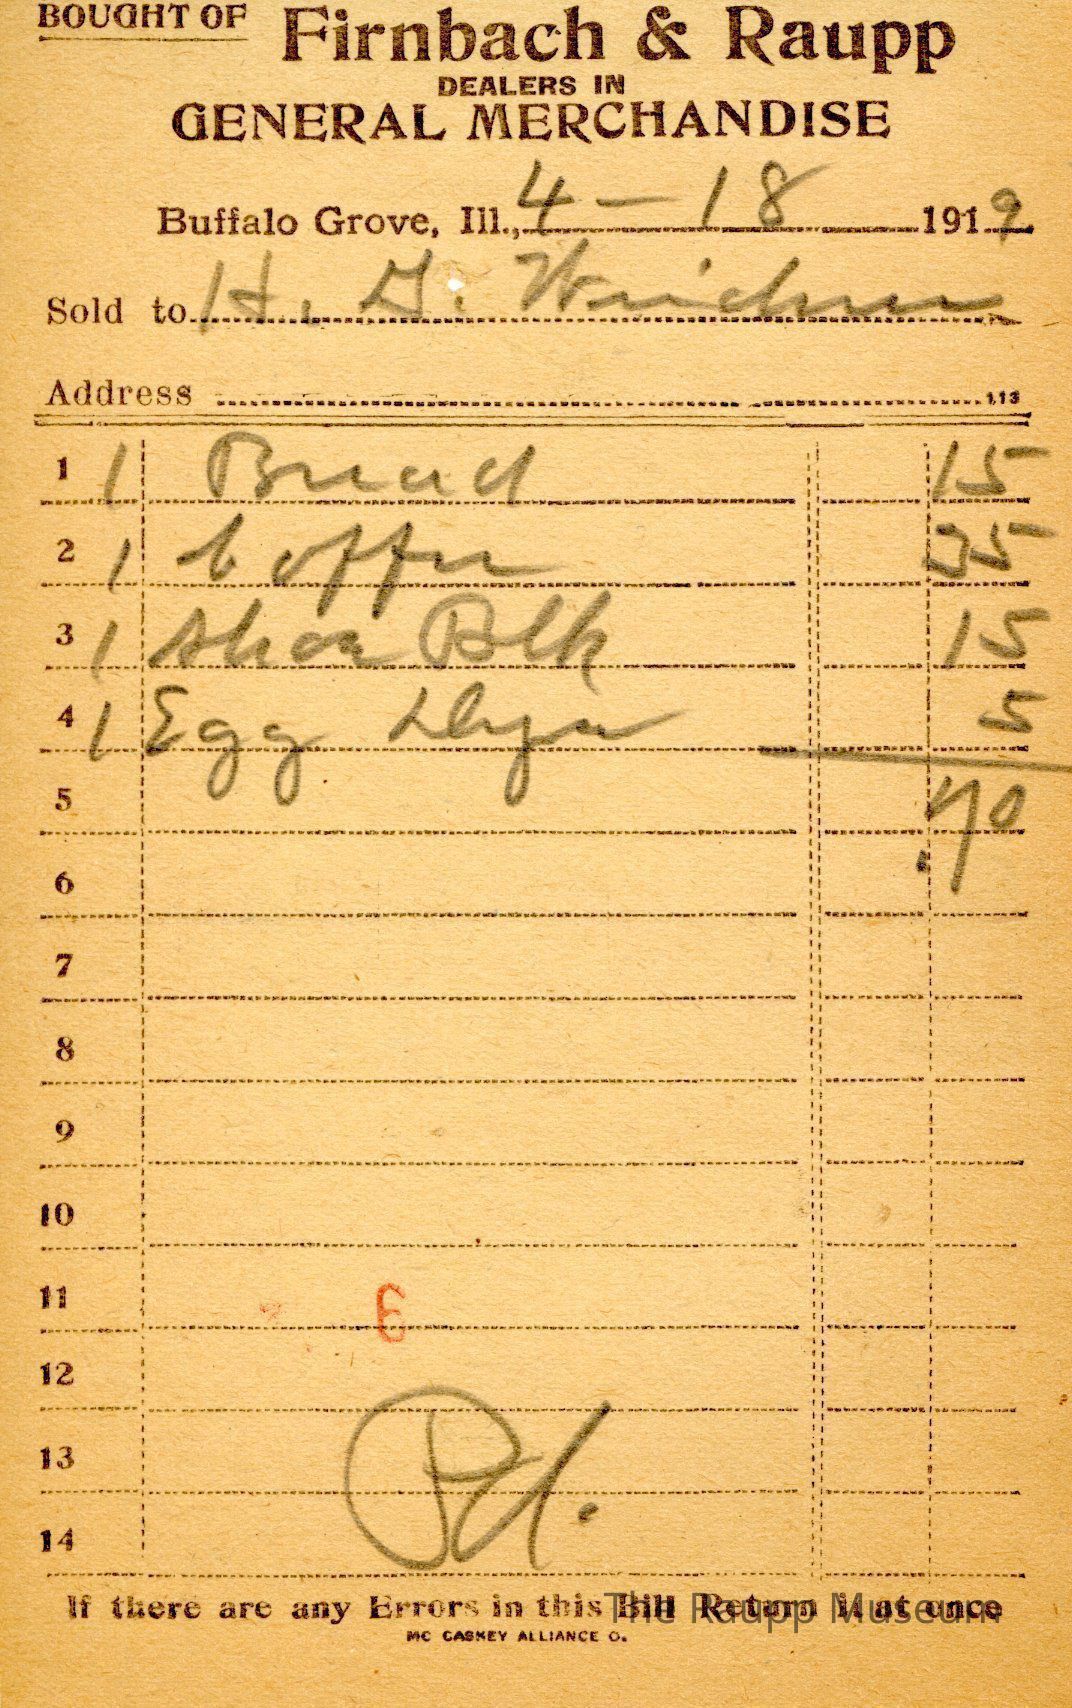 BOUGHT OF Firnbach & Raupp
DEALERS IN
GENERAL MERCHANDISE
Buffalo Grove, Ill., 4-18 1919
Sold to H. G.
Address 113
1 1 Bread 15
2 1 Coffee 35
3 1 Shoe Blk 15
4 1 Egg Dye 5
5 .70
6
7
8
9
10
11
6
12
13 Pd.
14
If there are any Errors in this Bill Return it at once
The Raupp Museum
MC CASKEY ALLIANCE O.